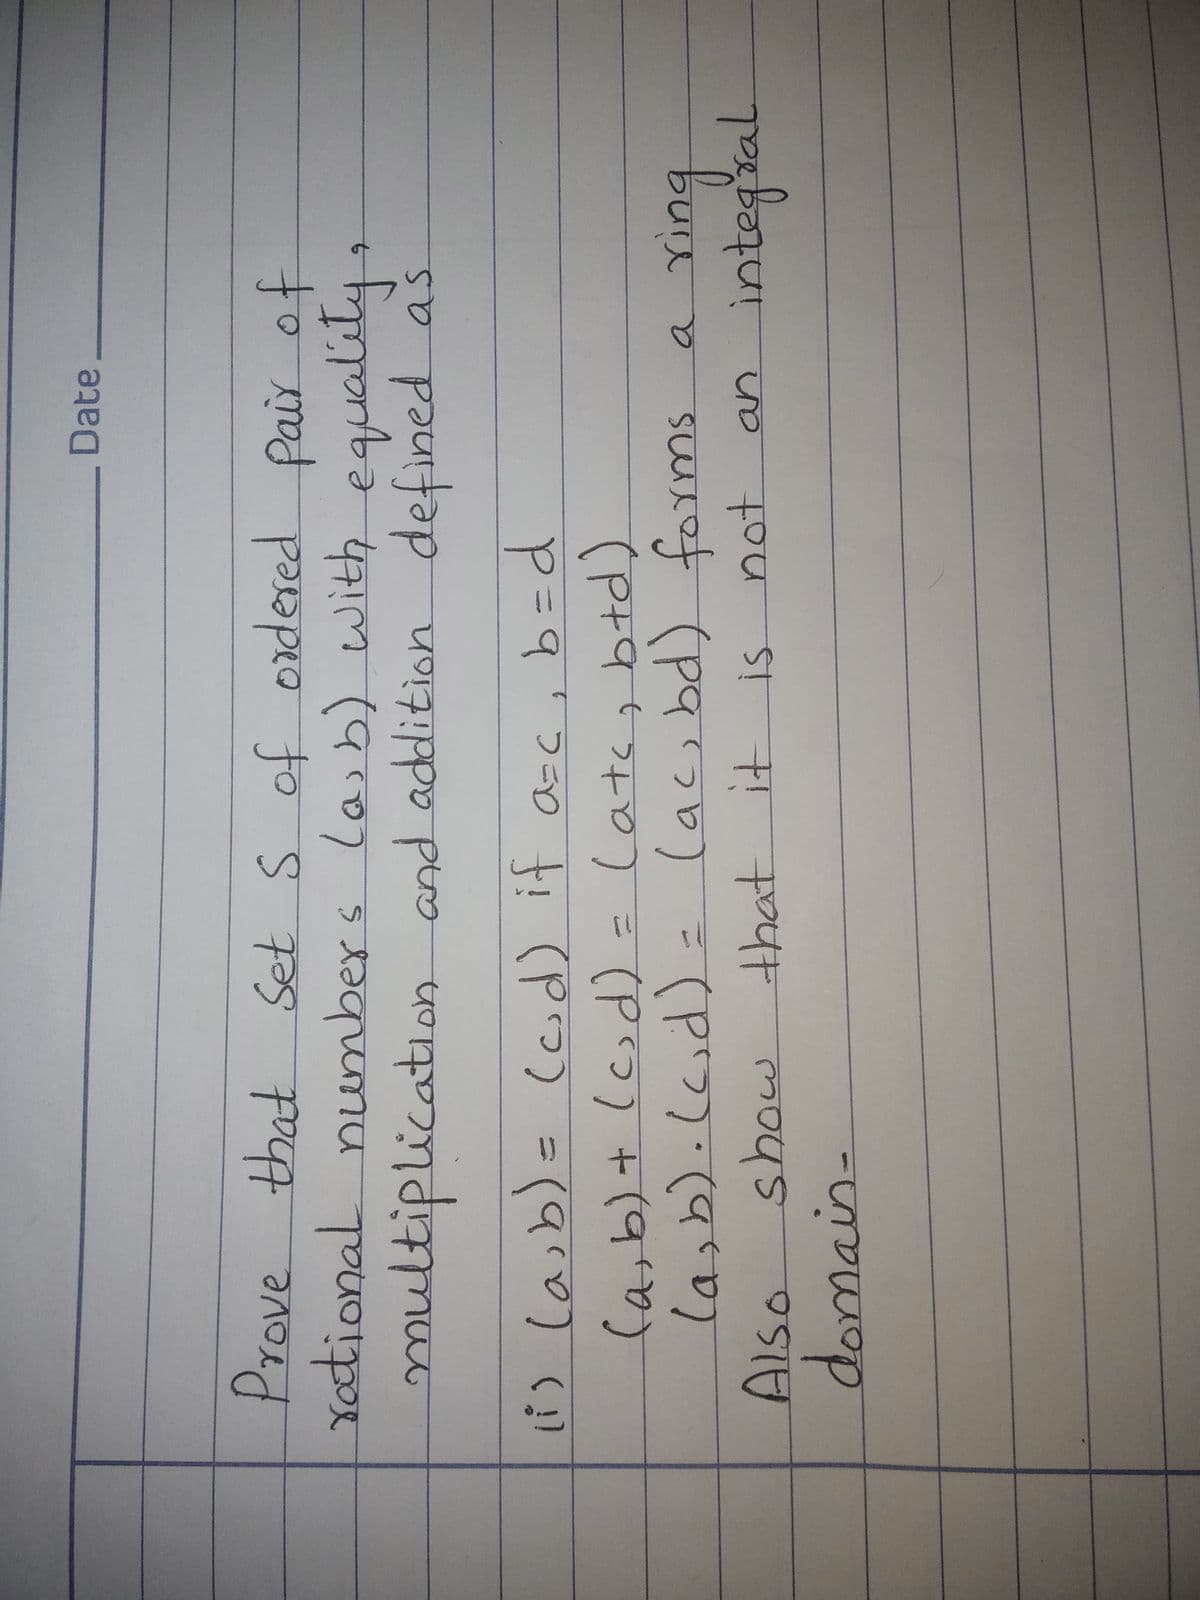 Date
Prove that Set S of ordered Pair of
rational numbers (a,b) with equality,
multiplication and addition defined as
(i) (a,b) = (c,d) if a=c, b=d
(a,b) + (c,d) = (a+c, b+d)
(a,b).(c,d) = (ac, bd) forms a ring
Also show that it is not an integral
domain-